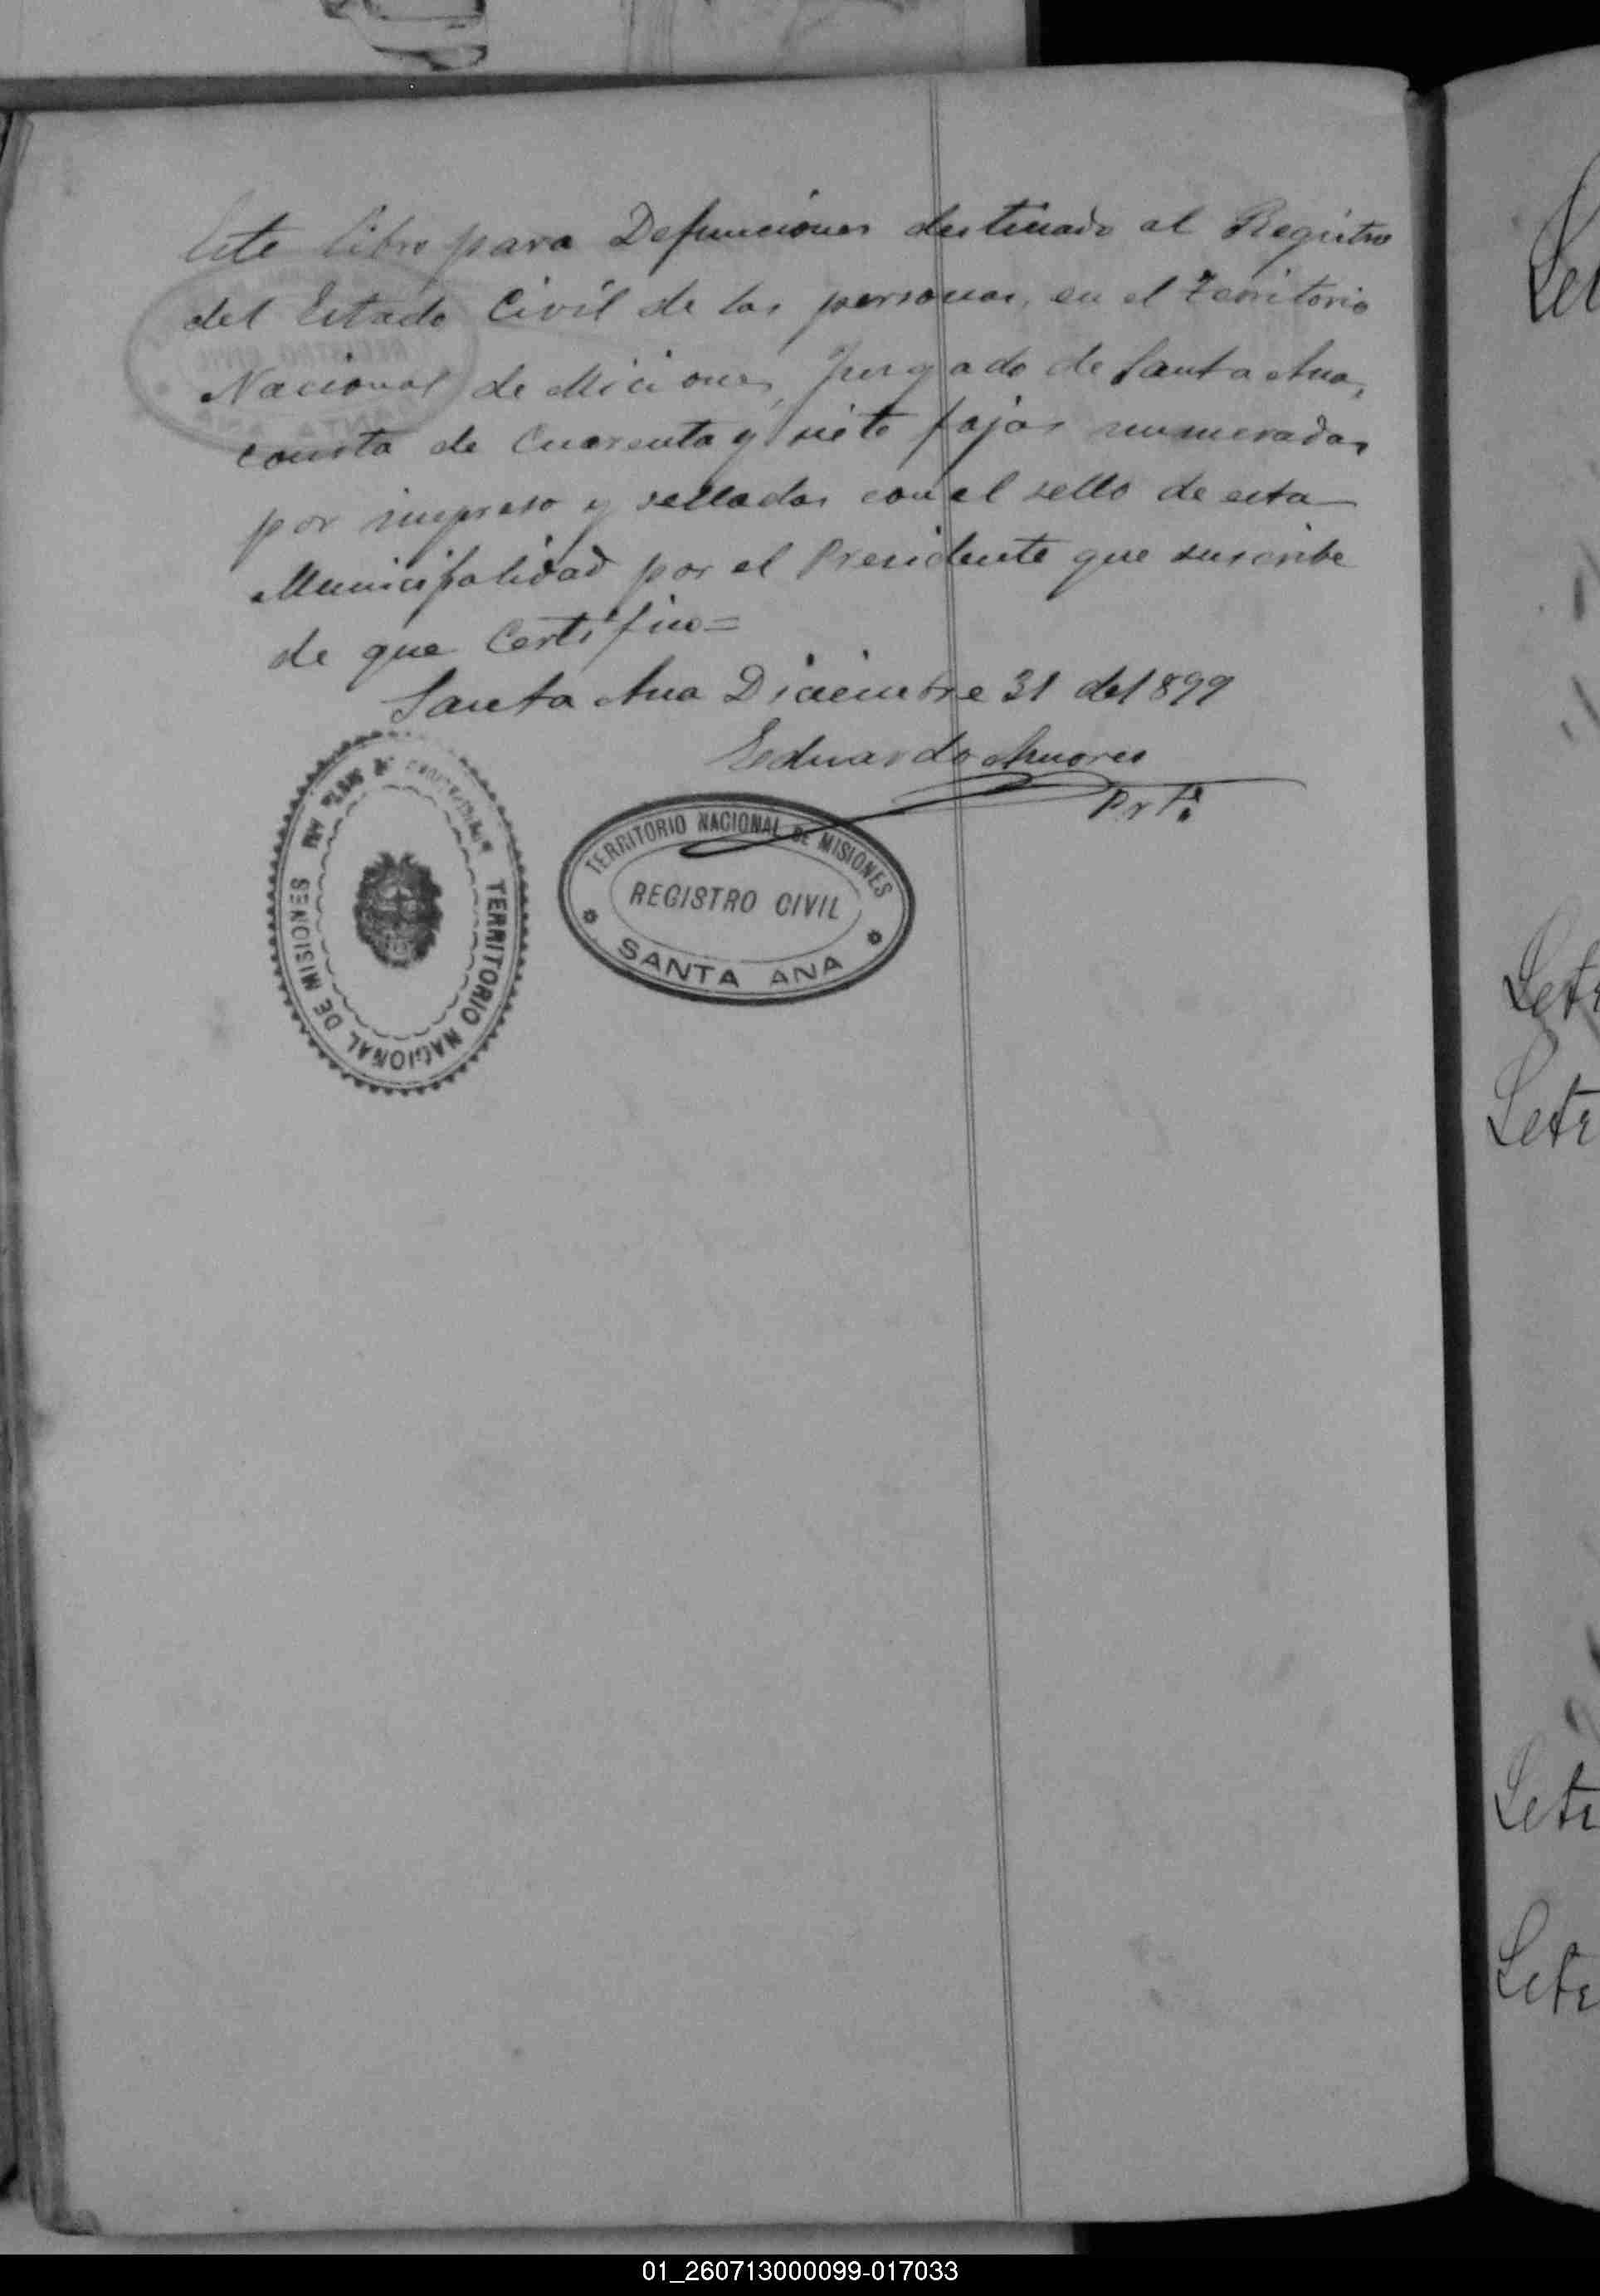 Este libro para Defunciones destinado al Registro
del Estado Civil de las personas, en el Territorio
Nacional de Miciones, Juzgado de Santa Ana,
consta de Cuarenta y siete fojas numeradas
por impreso y selladas con el sello de esta
Municipalidad por el Presidente que suscribe
de que Certifico=
Santa Ana Diciembre 31 de 1899
Eduardo
TERRITORIO NACIONAL DE MISIONES
TERRITORIO NACIONAL DE MISIONES
REGISTRO CIVIL
SANTA ANA
REGISTRO CIVIL
SANTA ANA
01_260713000099-017033